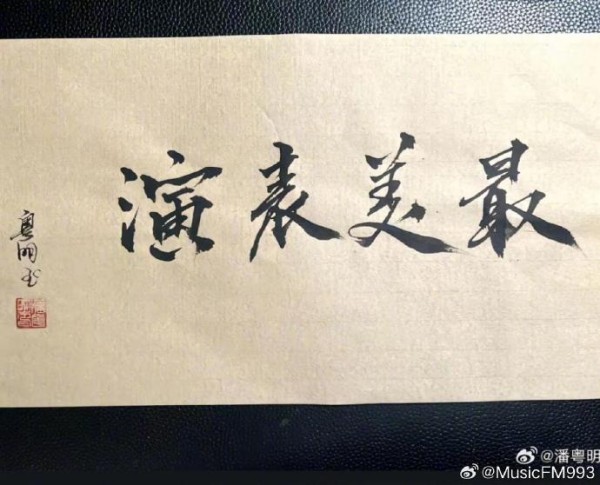 最美表演
粤明书
@潘粤明
@MusicFM993